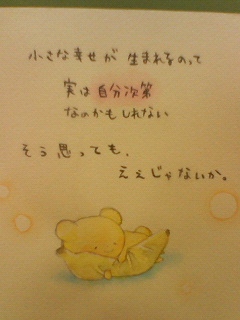 小さな幸せが 生まれるのって
実は自分次第
なのかもしれない
そう思っても、
ええじゃないか。